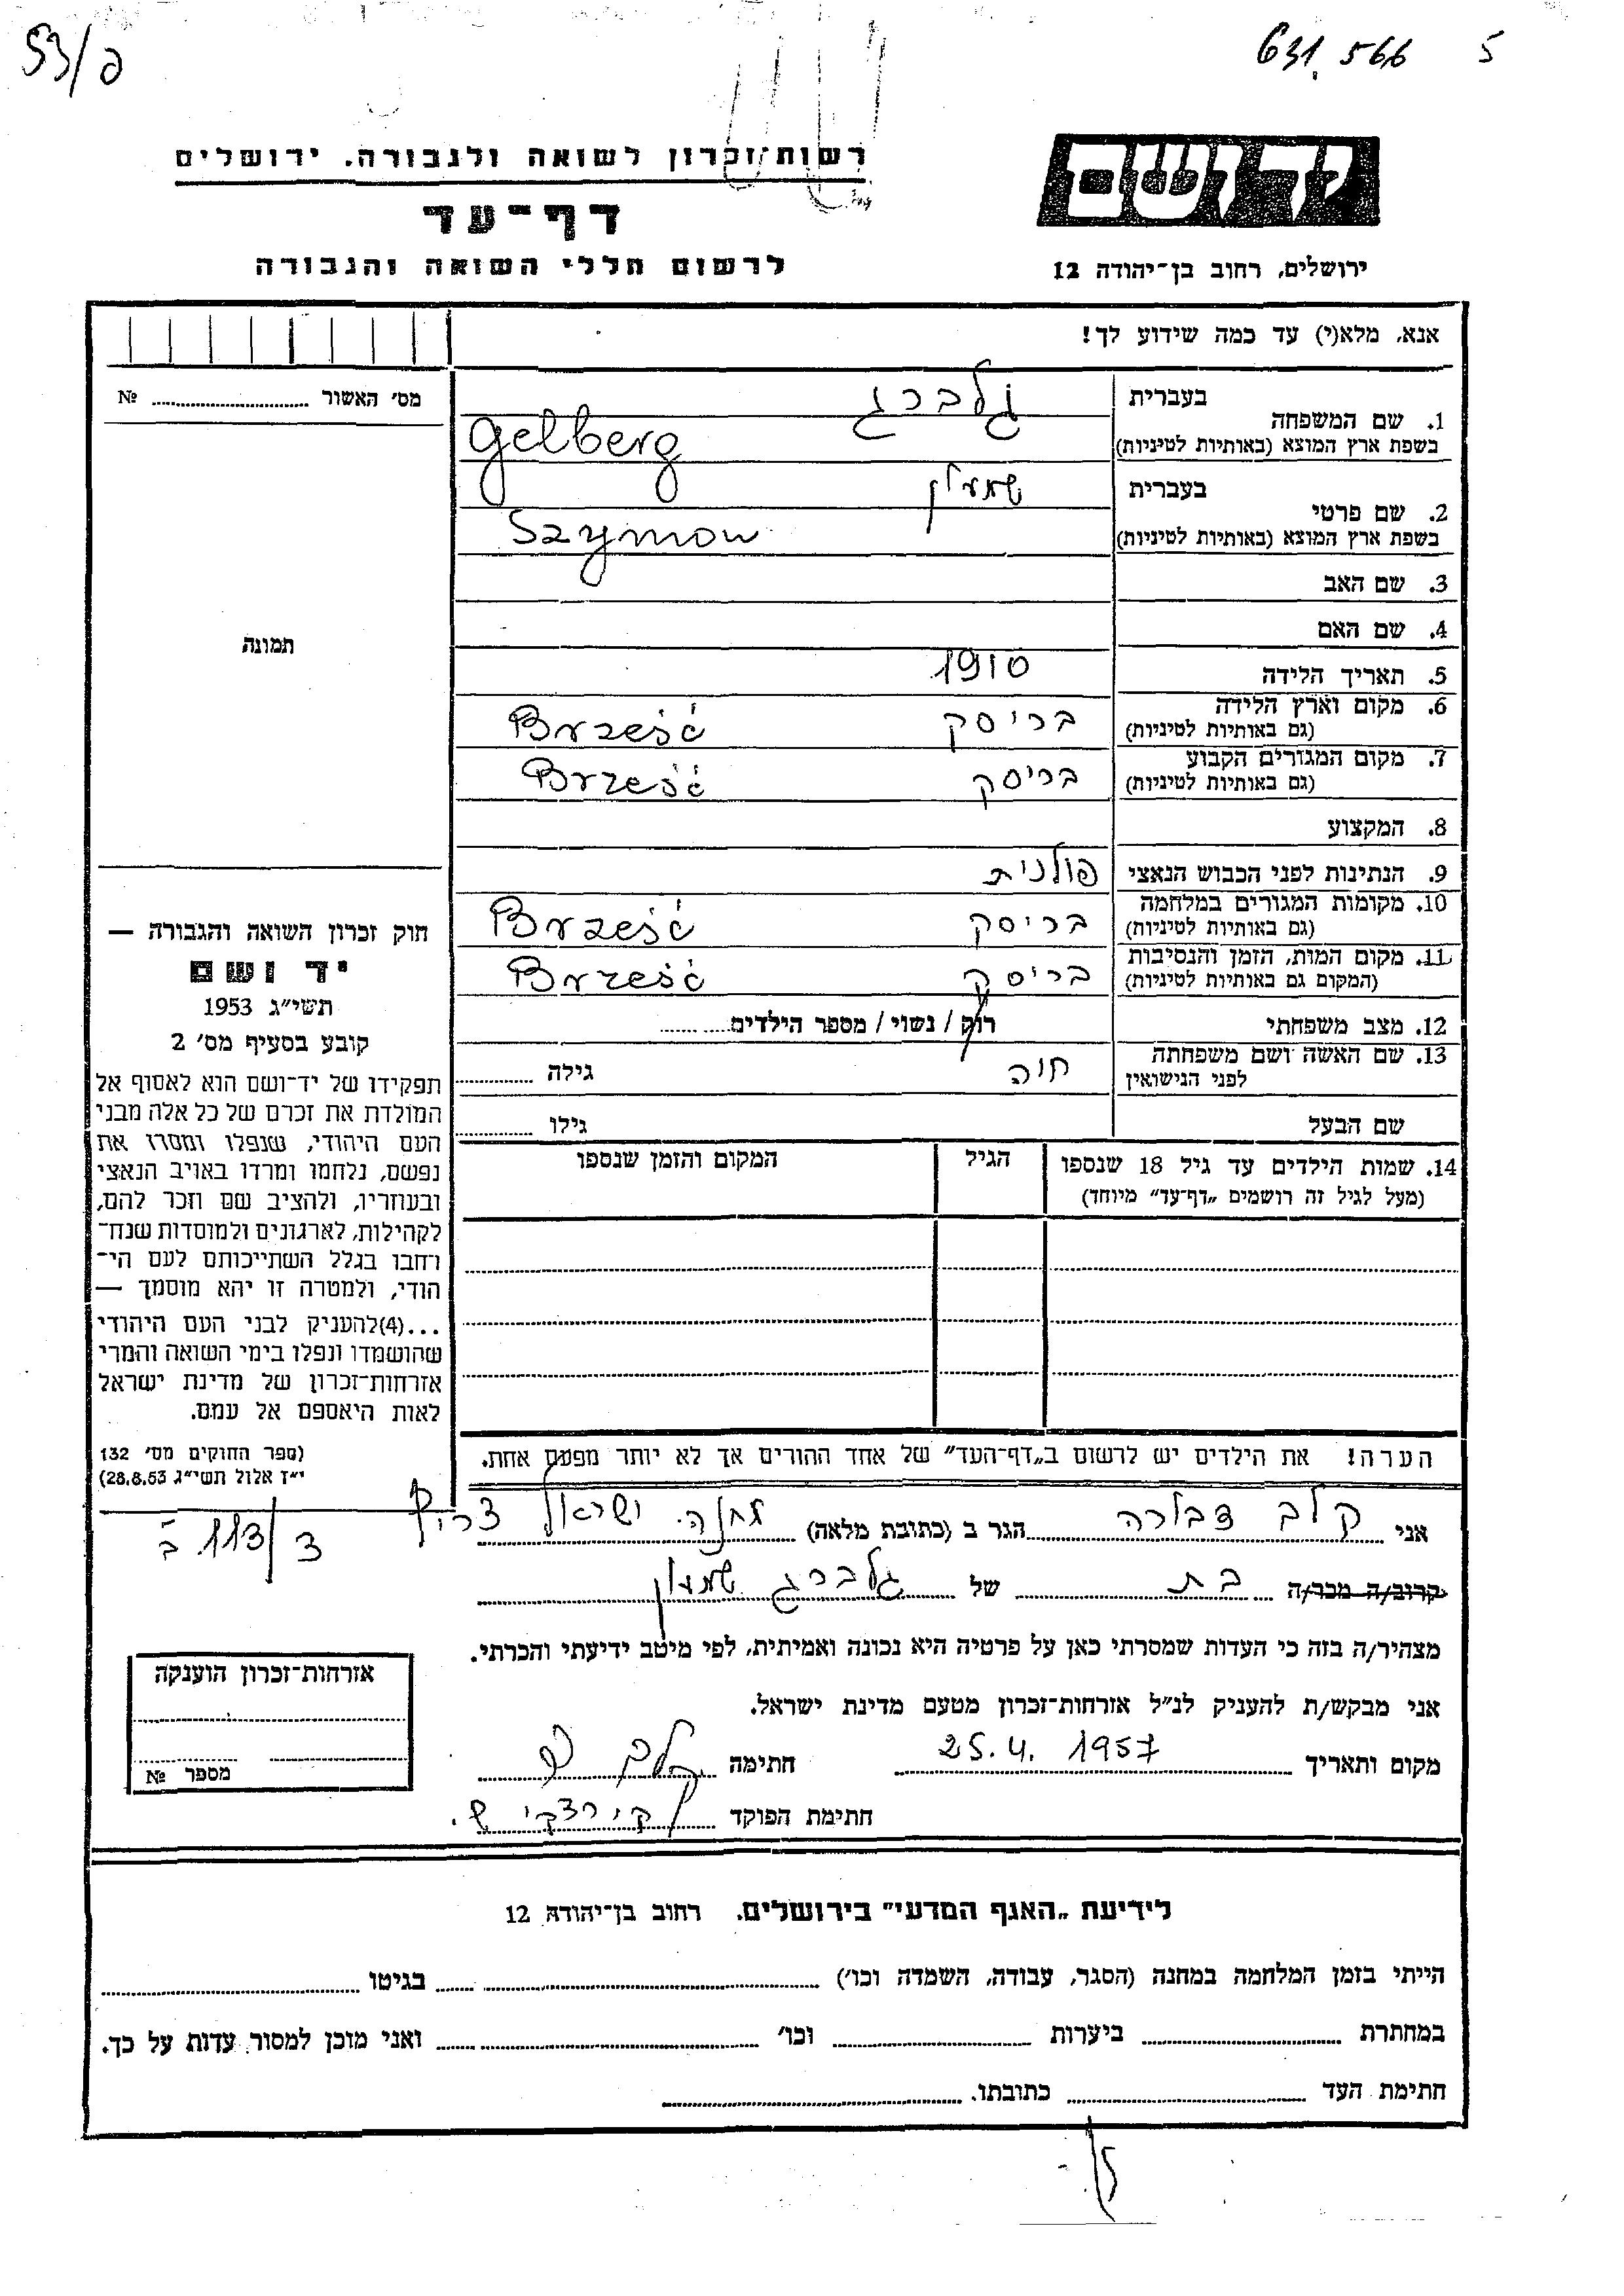 53/ס
631,566 5
רשות־זכרון לשואה ולגבורה. ירושלים
יד ושם
דף־עד
לרשום חללי השואה והגבורה
ירושלים, רחוב בן־יהודה 12
אנא, מלא(י) עד כמה שידוע לך!
מס׳ האשור № 
1. שם המשפחה בעברית גלברג
בשפת ארץ המוצא (באותיות לטיניות) Gelberg
2. שם פרטי בעברית שמעון
בשפת ארץ המוצא (באותיות לטיניות) Szymon
3. שם האב
4. שם האם
תמונה
5. תאריך הלידה 1910
6. מקום וארץ הלידה בריסק Brześć
(גם באותיות לטיניות)
7. מקום המגורים הקבוע בריסק Brześć
(גם באותיות לטיניות)
8. המקצוע
9. הנתינות לפני הכבוש הנאצי פולנית
10. מקומות המגורים במלחמה בריסק Brześć
(גם באותיות לטיניות)
11. מקום המות, הזמן והנסיבות בריסק Brześć
(המקום גם באותיות לטיניות)
12. מצב משפחתי רוק / נשוי / מספר הילדים
13. שם האשה ושם משפחתה חוה גילה
לפני הנישואין
שם הבעל גילו
14. שמות הילדים עד גיל 18 שנספו הגיל המקום והזמן שנספו
(מעל לגיל זה רושמים „דף־עד״ מיוחד)
הערה! את הילדים יש לרשום ב„דף־העד״ של אחד ההורים אך לא יותר מפעם אחת.
חוק זכרון השואה והגבורה —
יד ושם
תשי״ג 1953
קובע בסעיף מס׳ 2
תפקידו של יד־ושם הוא לאסוף אל
המולדת את זכרם של כל אלה מבני
העם היהודי, שנפלו ומסרו את
נפשם, נלחמו ומרדו באויב הנאצי
ובעוזריו, ולהציב שם וזכר להם,
לקהילות, לארגונים ולמוסדות שנח־
רחבו בגלל השתייכותם לעם הי־
הודי, ולמטרה זו יהא מוסמך —
...(4)להעניק לבני העם היהודי
שהושמדו ונפלו בימי השואה והמרי
אזרחות־זכרון של מדינת ישראל
לאות היאספם אל עמם.
(ספר החוקים מס׳ 132
י״ז אלול תשי״ג 28.8.53)
אני קלב דבורה הגר ב (כתובת מלאה) מחנה ישראל צריף
צ/113 ב
קרוב/ה מכר/ה בת של גלברג שמעון
מצהיר/ה בזה כי העדות שמסרתי כאן על פרטיה היא נכונה ואמיתית, לפי מיטב ידיעתי והכרתי.
אני מבקש/ת להעניק לנ״ל אזרחות־זכרון מטעם מדינת ישראל.
מקום ותאריך 25.4.1957 חתימה קלב
חתימת הפוקד
אזרחות־זכרון הוענקה
מספר №
לידיעת „האגף המדעי״ בירושלים. רחוב בן־יהודה 12
הייתי בזמן המלחמה במחנה (הסגר, עבודה, השמדה וכו׳) בגיטו
במחתרת ביערות וכו׳ ואני מוכן למסור עדות על כך.
חתימת העד כתובתו.